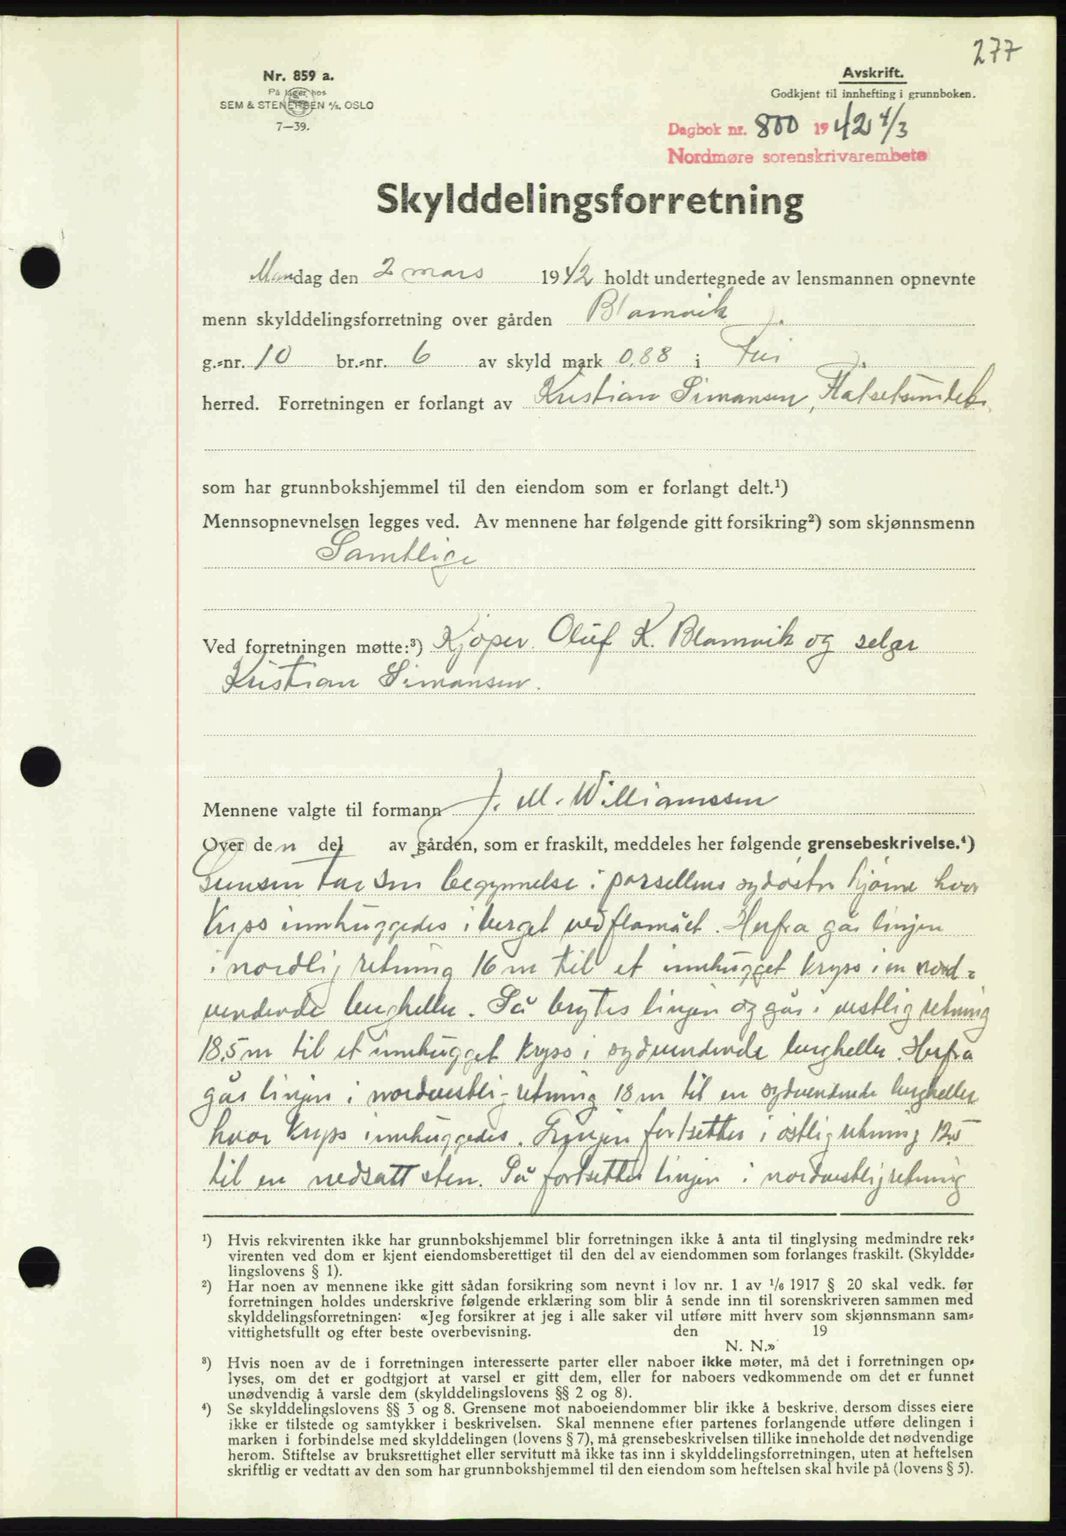 277
Nr. 859 a.
På lager hos
SEM & STENERSEN A/S. OSLO
7—39.
Avskrift.
Godkjent til innhefting i grunnboken.
Dagbok nr. 800 1942 4/3
Nordmøre sorenskrivarembete
Skylddelingsforretning
Mandag den 2 mars 1942 holdt undertegnede av lensmannen opnevnte
menn skylddelingsforretning over gården Blomvik
g.-nr. 10 br.-nr. 6 av skyld mark 0.88 i
herred. Forretningen er forlangt av Kristian Simonsen,
som har grunnbokshjemmel til den eiendom som er forlangt delt.¹)
Mennsopnevnelsen legges ved. Av mennene har følgende gitt forsikring²) som skjønnsmenn
Samtlige
Ved forretningen møtte:³) Kjøper Oluf K. Blomvik og selger
Kristian Simonsen.
Mennene valgte til formann J. M. Williamssen
Over den del av gården, som er fraskilt, meddeles her følgende grensebeskrivelse.⁴)
Grensen tar sin begynnelse i parsellens sydøstre hjørne hvor
kryss innhuggedes i berget ved flomålet. Herfra går linjen
i nordlig retning 16 m til et innhugget kryss i en nord-
vendende berghelle. Så brytes linjen og går i vestlig retning
18,5 m til et innhugget kryss i sydvendende berghelle. Herfra
går linjen i nordvestlig retning 18 m til en sydvendende berghelle
hvor kryss innhuggedes. Linjen fortsetter i østlig retning 12.5
til en nedsatt sten. Så fortsetter linjen i nordvestlig retning
¹) Hvis rekvirenten ikke har grunnbokshjemmel blir forretningen ikke å anta til tinglysing medmindre rek-
virenten ved dom er kjent eiendomsberettiget til den del av eiendommen som forlanges fraskilt. (Skyldde-
lingslovens § 1).
²) Har noen av mennene ikke gitt sådan forsikring som nevnt i lov nr. 1 av 1/6 1917 § 20 skal vedk. før
forretningen holdes underskrive følgende erklæring som blir å sende inn til sorenskriveren sammen med
skylddelingsforretningen: «Jeg forsikrer at jeg i alle saker vil utføre mitt hverv som skjønnsmann sam-
vittighetsfullt og efter beste overbevisning. den 19
N. N.»
³) Hvis noen av de i forretningen interesserte parter eller naboer ikke møter, må det i forretningen op-
lyses, om det er godtgjort at varsel er gitt dem, eller for naboers vedkommende om det er funnet
unødvendig å varsle dem (skylddelingslovens §§ 2 og 8).
⁴) Se skylddelingslovens §§ 3 og 8. Grensene mot naboeiendommer blir ikke å beskrive, dersom disses eiere
ikke er tilstede og samtykker i beskrivelsen. Skal mennene efter partenes forlangende utføre delingen i
marken i forbindelse med skylddelingen (lovens § 7), må grensebeskrivelsen tillike inneholde det nødvendige
herom. Stiftelse av bruksrettighet eller servitutt må ikke tas inn i skylddelingsforretningen, uten at heftelsen
skriftlig er vedtatt av den som har grunnbokshjemmel til den eiendom som heftelsen skal hvile på (lovens § 5).